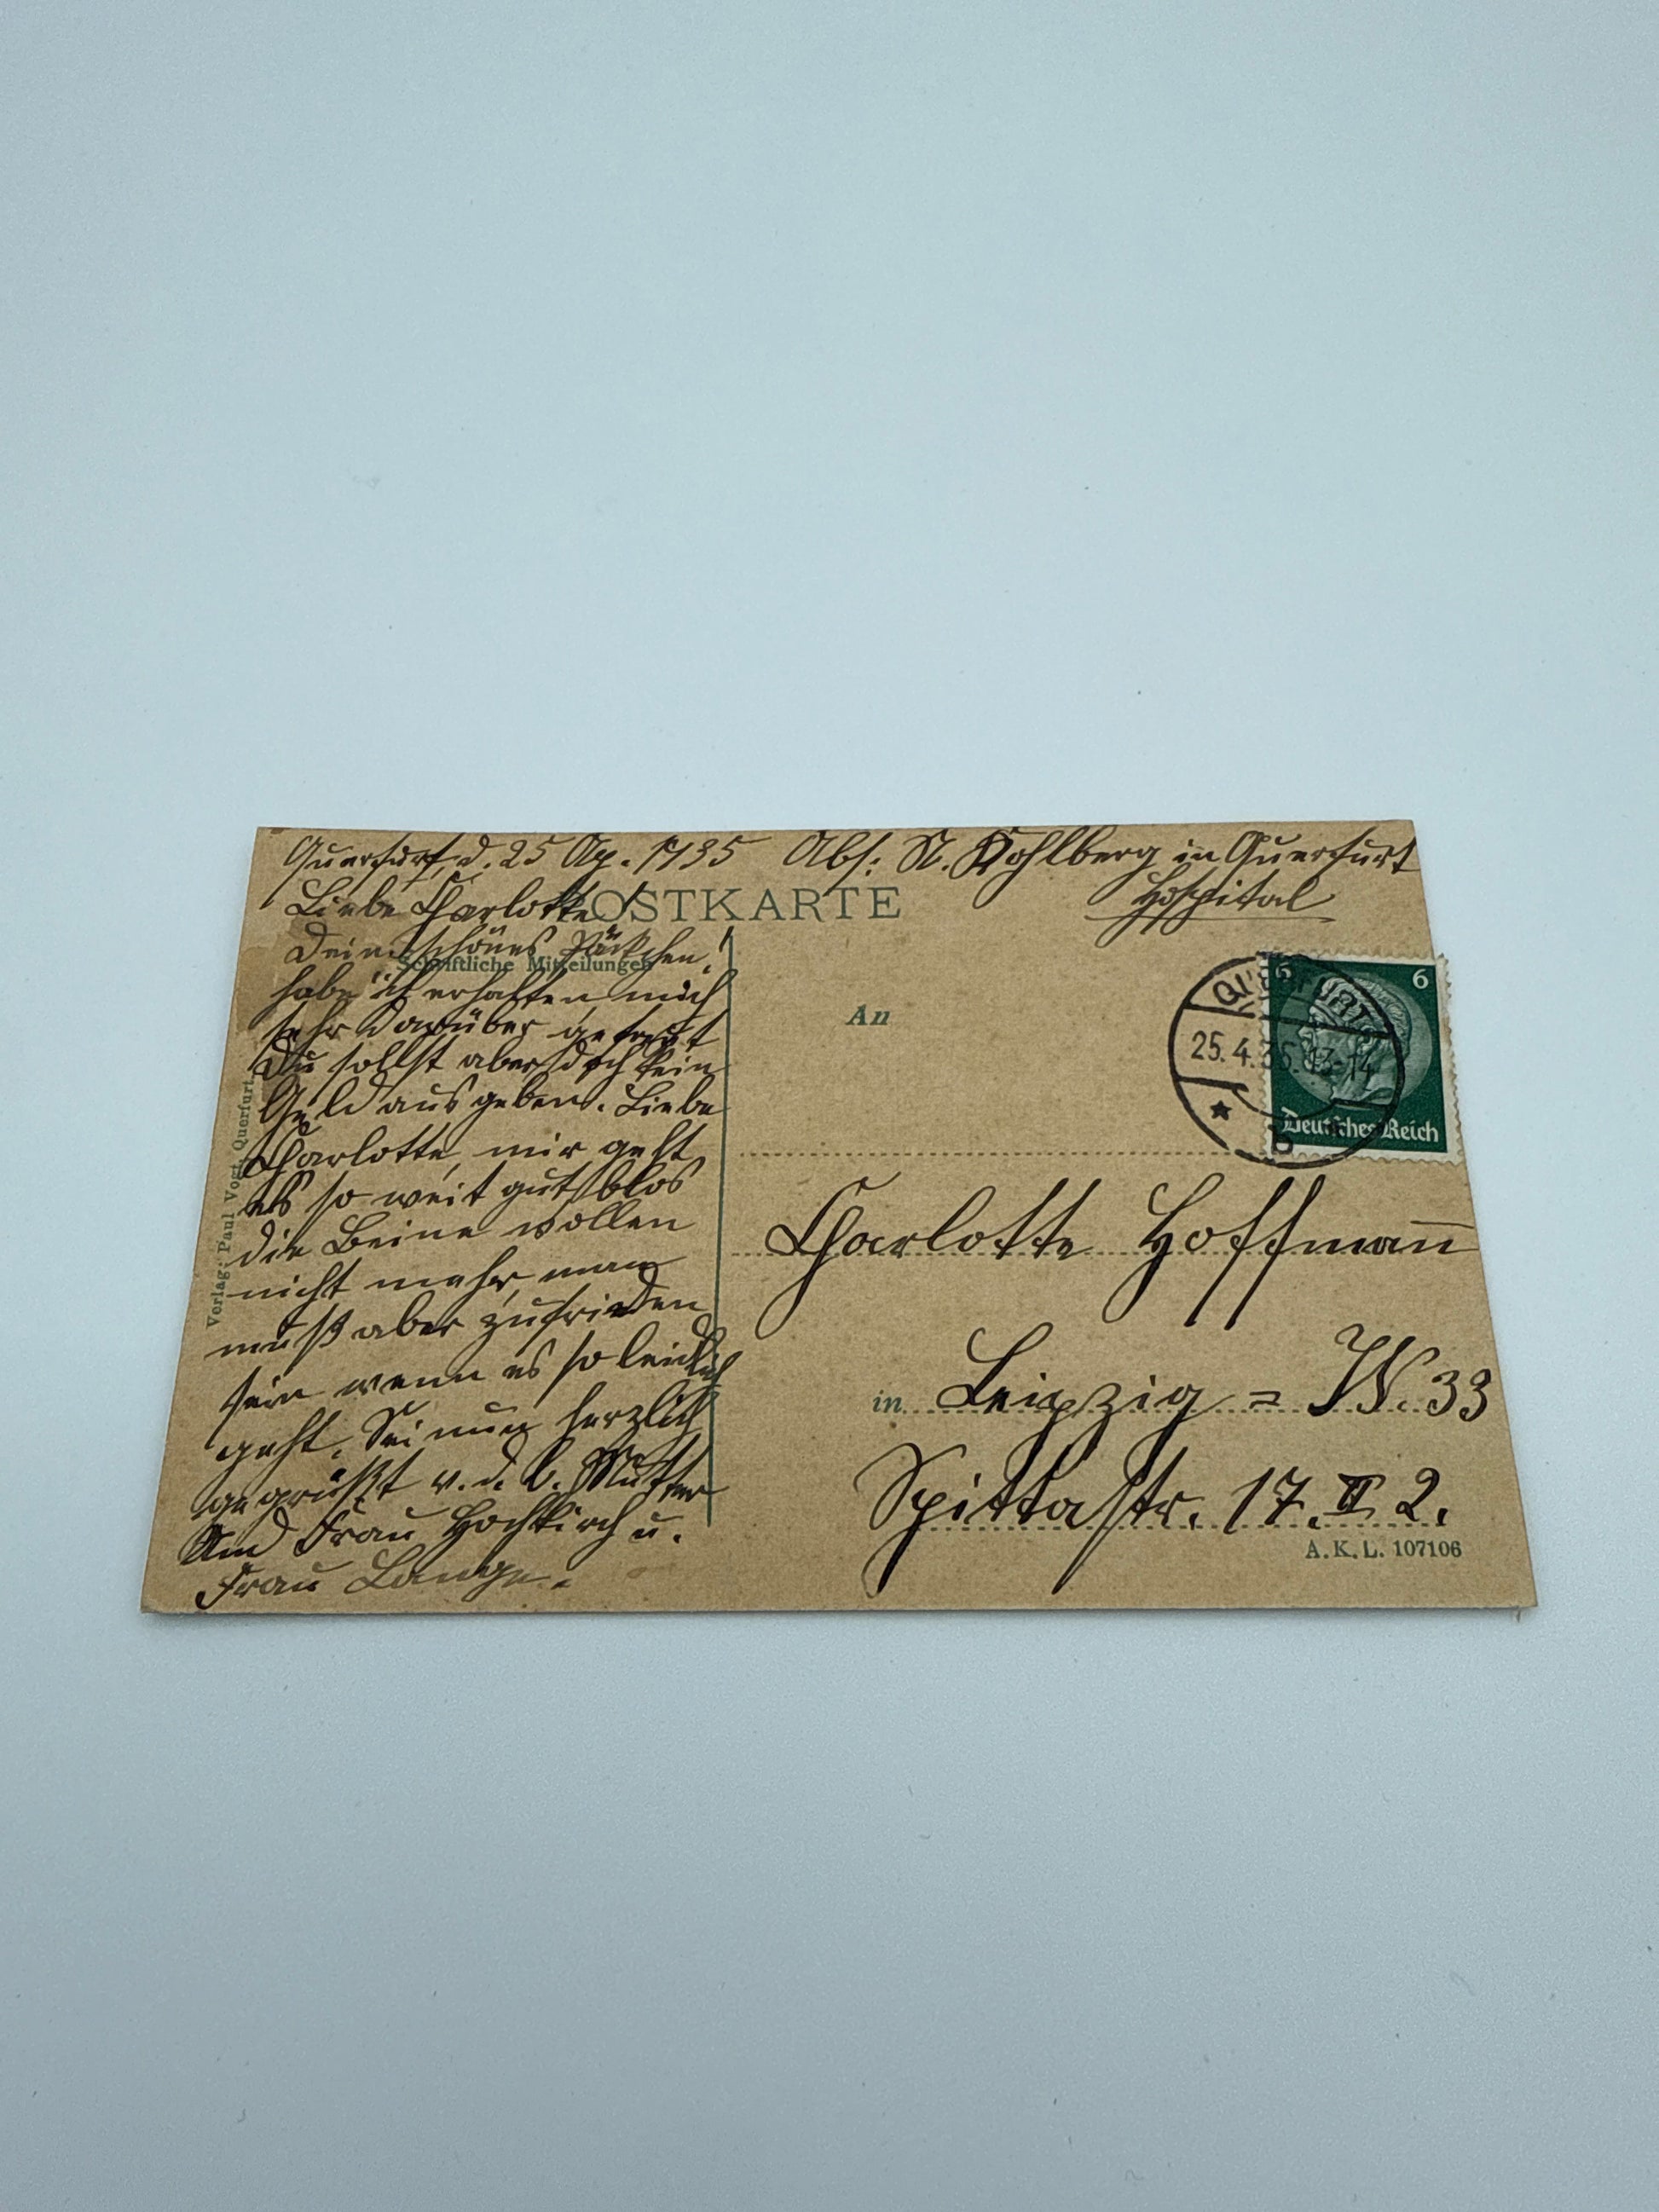 Querfurt, d. 25 Ap. 1935 Abs: A. Kohlberg in Querfurt
Hospital
POSTKARTE
Liebe Charlotte!
Schriftliche Mitteilungen
Dein schönes Päckchen,
habe ich erhalten, mich
sehr darüber gefreut
Du sollst aber doch kein
Geld ausgeben. Liebe
Charlotte, mir geht
es so weit gut blos
die Beine wollen
nicht mehr, man
muß aber zufrieden
sein wenn es so leidlich
geht. Sei nun herzlich
gegrüßt v. d. l. Mutter
Und Frau Hochkirch u.
Frau Lange.
Verlag: Paul Vogt, Querfurt.
An
QUERFURT
25.4.35.13-14
b
6 6
Deutsches Reich
Charlotte Hoffmann̅
in Leipzig = W. 33
Spittastr. 17. II 2.
A.K.L. 107106